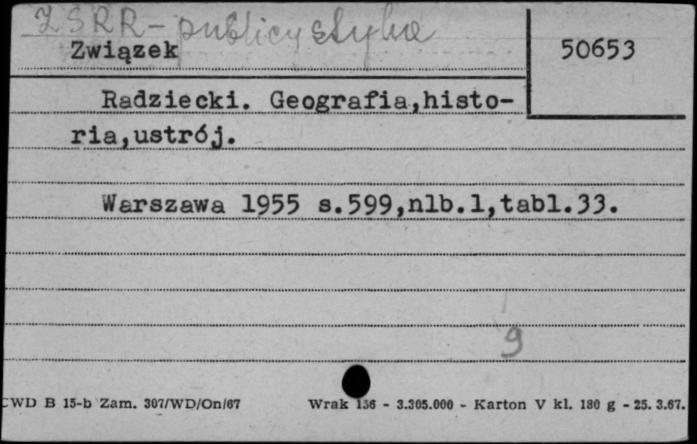 ZSRR - publicystyka
Związek
50653
Radziecki. Geografia,histo-
ria,ustrój.
Warszawa 1955 s.599,nlb.1,tabl.33.
9
CWD B 15-b Zam. 307/WD/On/67 Wrak 156 - 3.305.000 - Karton V kl. 180 g - 25. 3.67.